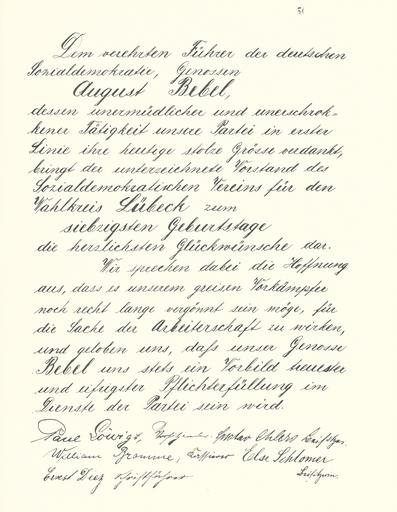 51
Dem verehrten Führer der deutschen
Sozialdemokratie, Genossen
August Bebel,
dessen unermüdlicher und unerschrok-
kener Tätigkeit unsere Partei in erster
Linie ihre heutige stolze Grösse verdankt,
bringt der unterzeichnete Vorstand des
Sozialdemokratischen Vereins für den
Wahlkreis Lübeck zum
siebzigsten Geburtstage
die herzlichsten Glückwünsche dar.
Wir sprechen dabei die Hoffnung
aus, dass es unserem greisen Vorkämpfer
noch recht lange vergönnt sein möge, für
die Sache der Arbeiterschaft zu wirken,
und geloben uns, daß unser Genosse
Bebel uns stets ein Vorbild treuester
und eifrigster Pflichterfüllung im
Dienste der Partei sein wird.
Paul Löwigt, Gustav Ehlers
William Bromme, Kassierer Else Schlomer
Ernst Diez Schriftführer